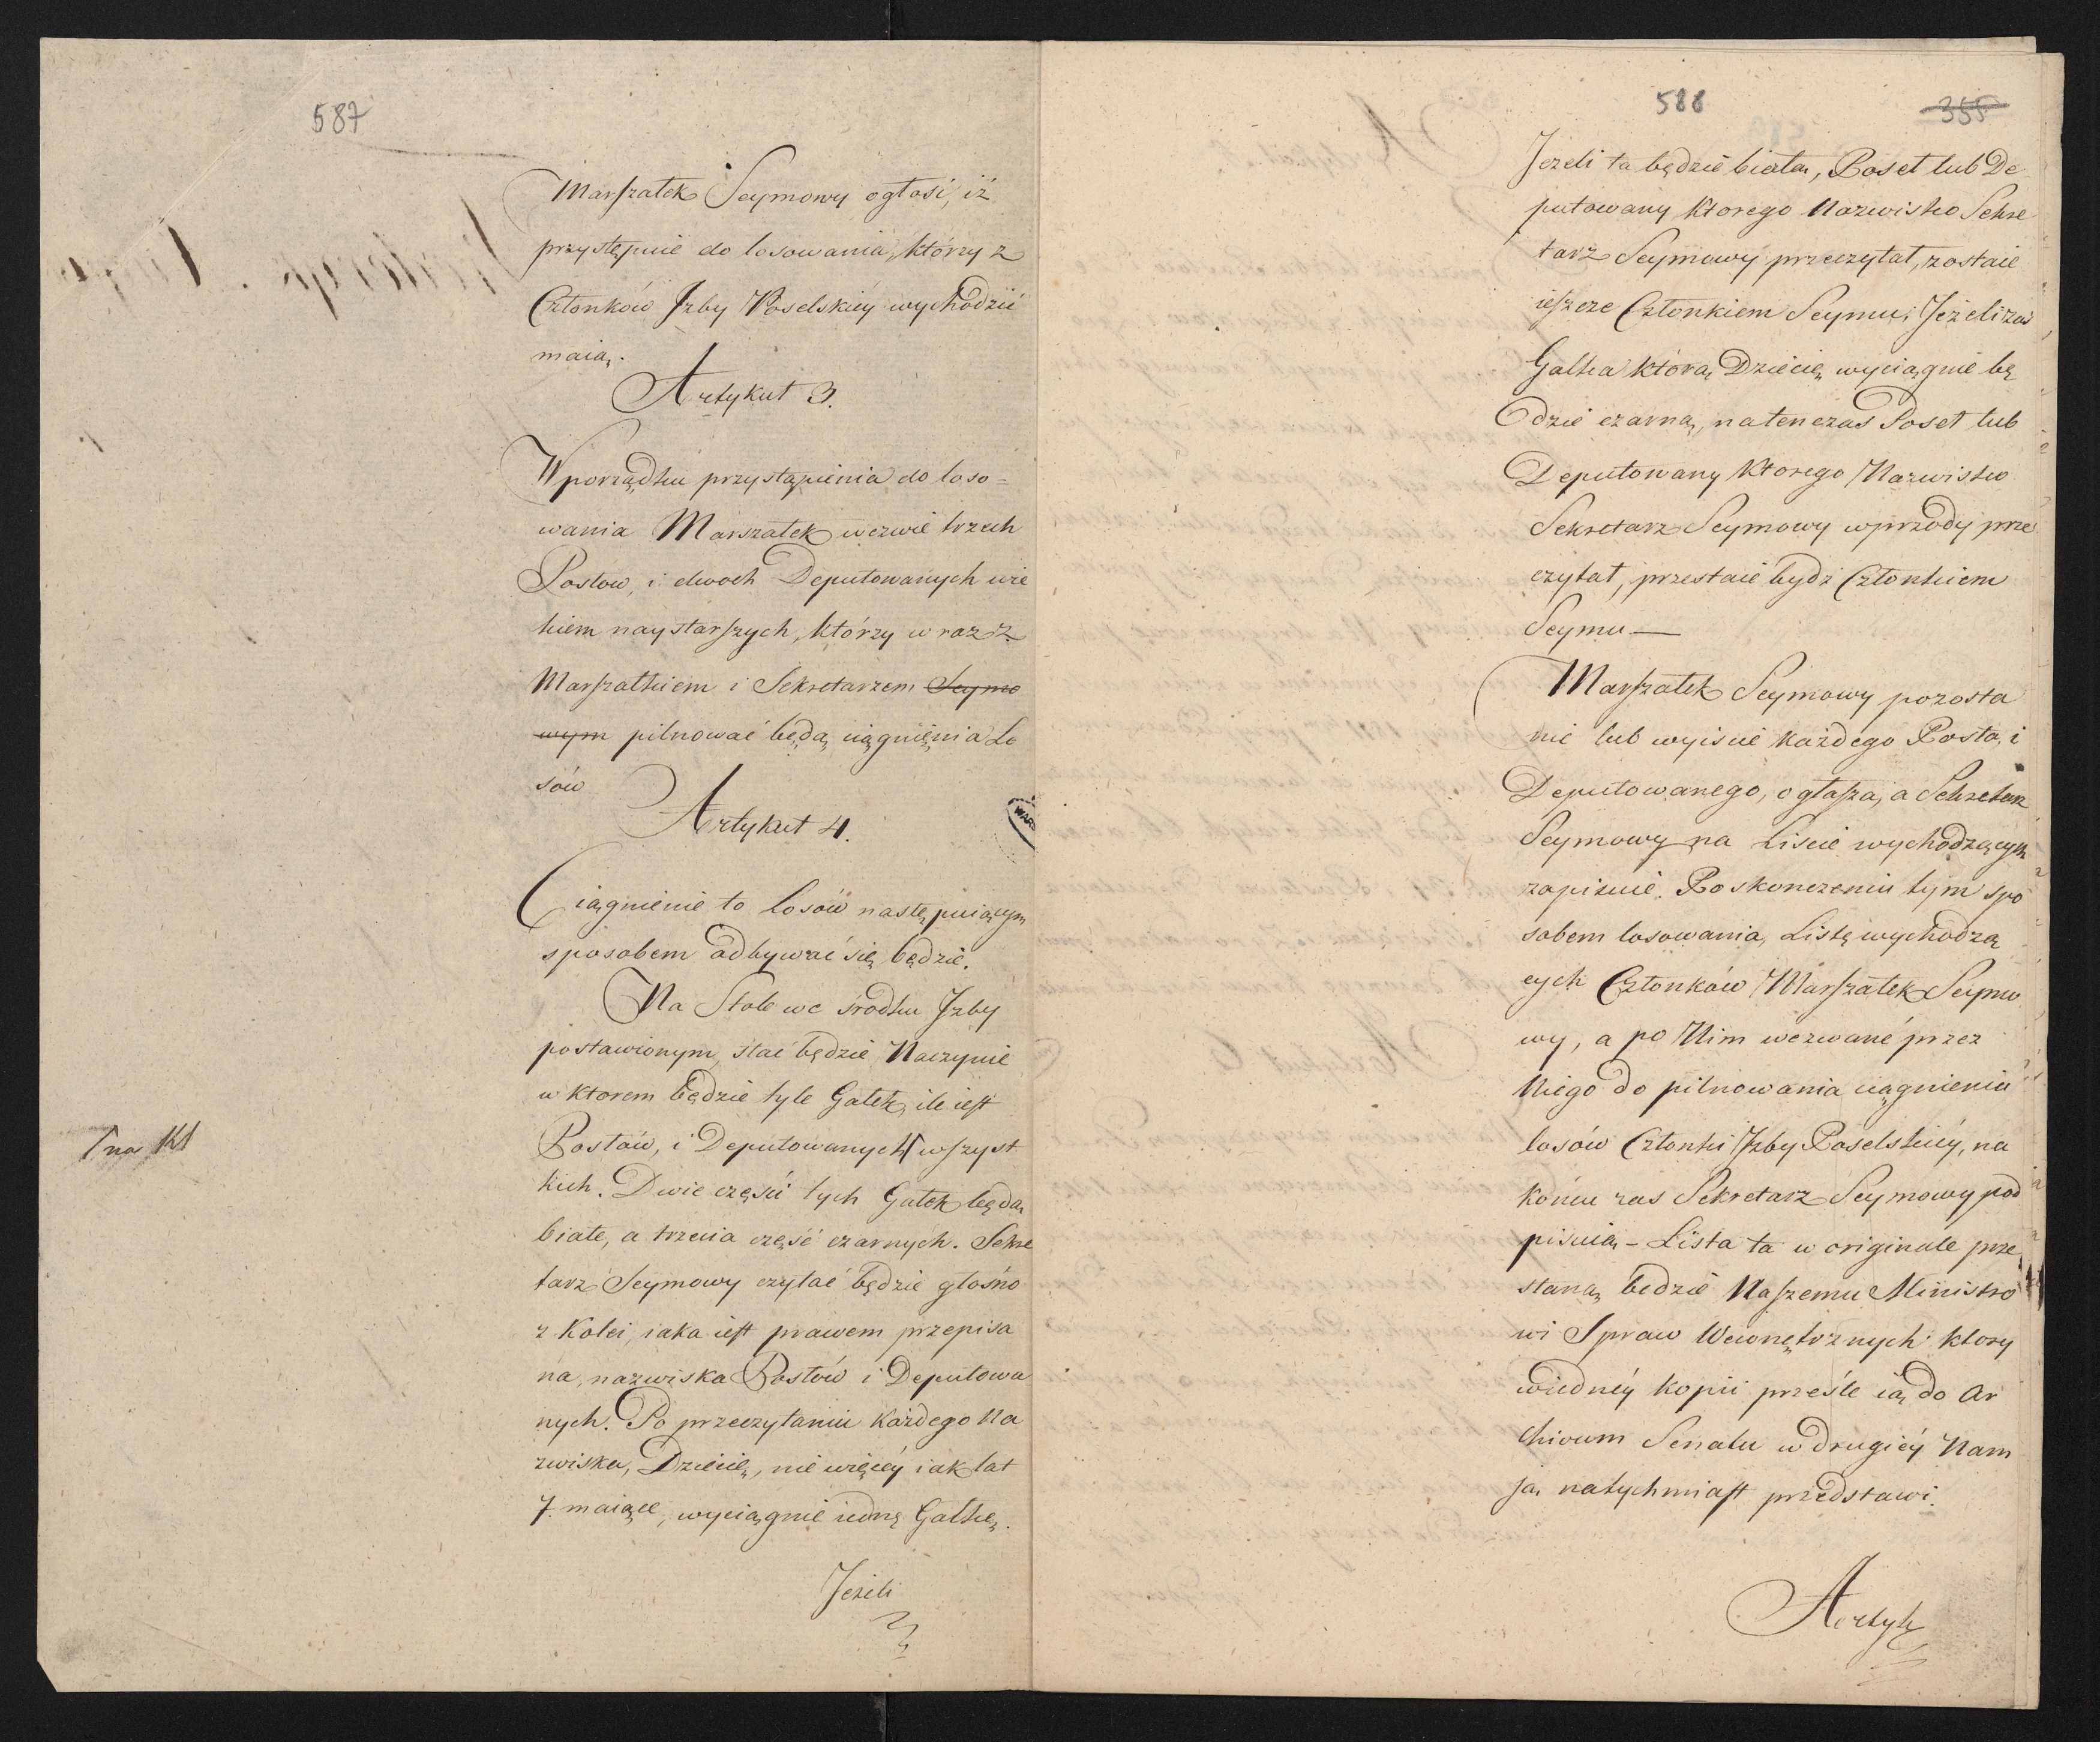 587
Marszałek Seymowy ogłosi, iż
przystępuie do losowania, którzy z
Członków Izby Poselskiéy wychodzić
maią.
Artykuł 3.
W porządku przystąpienia do loso=
wania Marszałek wezwie trzech
Posłow, i dwoch Deputowanych wie
kiem naystarszych, którzy wraz z
Marszałkiem i Sekretarzem Seymo
wym pilnować będą ciągnięnia Lo
sów
Artykuł 4.
Ciągnienie to Losów następuiącym
sposobem odbywać się będzie.
Na Stole we srodku Izby
postawionym, stać będzie Naczynie
w ktorem będzie tyle Gałek, ile iest
Posłów, i Deputowanych wszyst
kich. Dwie części tych Gałek będą
białe, a trzecia część czarnych. Sekre
tarz Seymowy czytać będzie głośno
z Kolei, iaka iest prawem przepisa
na, nazwiska Posłów i Deputowa
nych. Po przeczytaniu każdego Na
zwiska, Dziecię, nie więcéy iak lat
7. maiące, wyciągnie iedną Gałkę.
Jeżeli
na
588
355
Jezeli ta będzie biała, Poseł lub De
putowany ktorego Nazwisko Sekre
tarz Seymowy przeczytał, zostaie
ieszcze Członkiem Seymu; Jeżeli zaś
Gałka którą Dziecię wyciągnie bę
dzie czarną, natenczas Poseł lub
Deputowany Ktorego Nazwisko
Sekretarz Seymowy wprzody prze
czytał, przestaie bydź Członkiem
Seymu —
Marszałek Seymowy pozosta
nie lub wyiscie każdego Posła, i
Deputowanego, ogłasza, a Sekretarz
Seymowy na Liscie wychodzących
zapisuie. Po skonczeniu tym spo
sobem losowania, Listę wychodzą
cych Członków Marszałek Seymo
wy, a po Nim wezwane przez
Niego do pilnowania ciągnienia
losów Członki Izby Poselskiéy, na
końcu zas Sekretarz Seymowy pod
pisuią – Lista ta w originale prze
słaną bedzie Naszemu Ministro
wi Spraw Wewnętrznych ktory
wiednéy kopii prześle ią do Ar
chivum Senatu w drugiéy Nam
ją natychmiast przedstawi.
Artyk